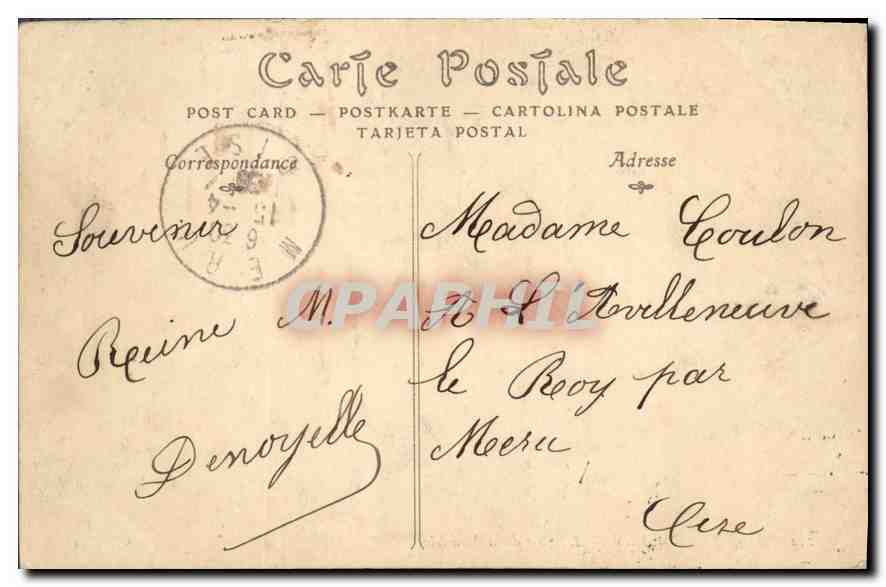 Carte Postale
POST CARD — POSTKARTE — CARTOLINA POSTALE
TARJETA POSTAL
Correspondance
Adresse
Souvenir
Reine M.
Denoyelle
Madame Coulon
A L'Avilleneuve
le Roy par
Meru
Oise
CPAPHIL